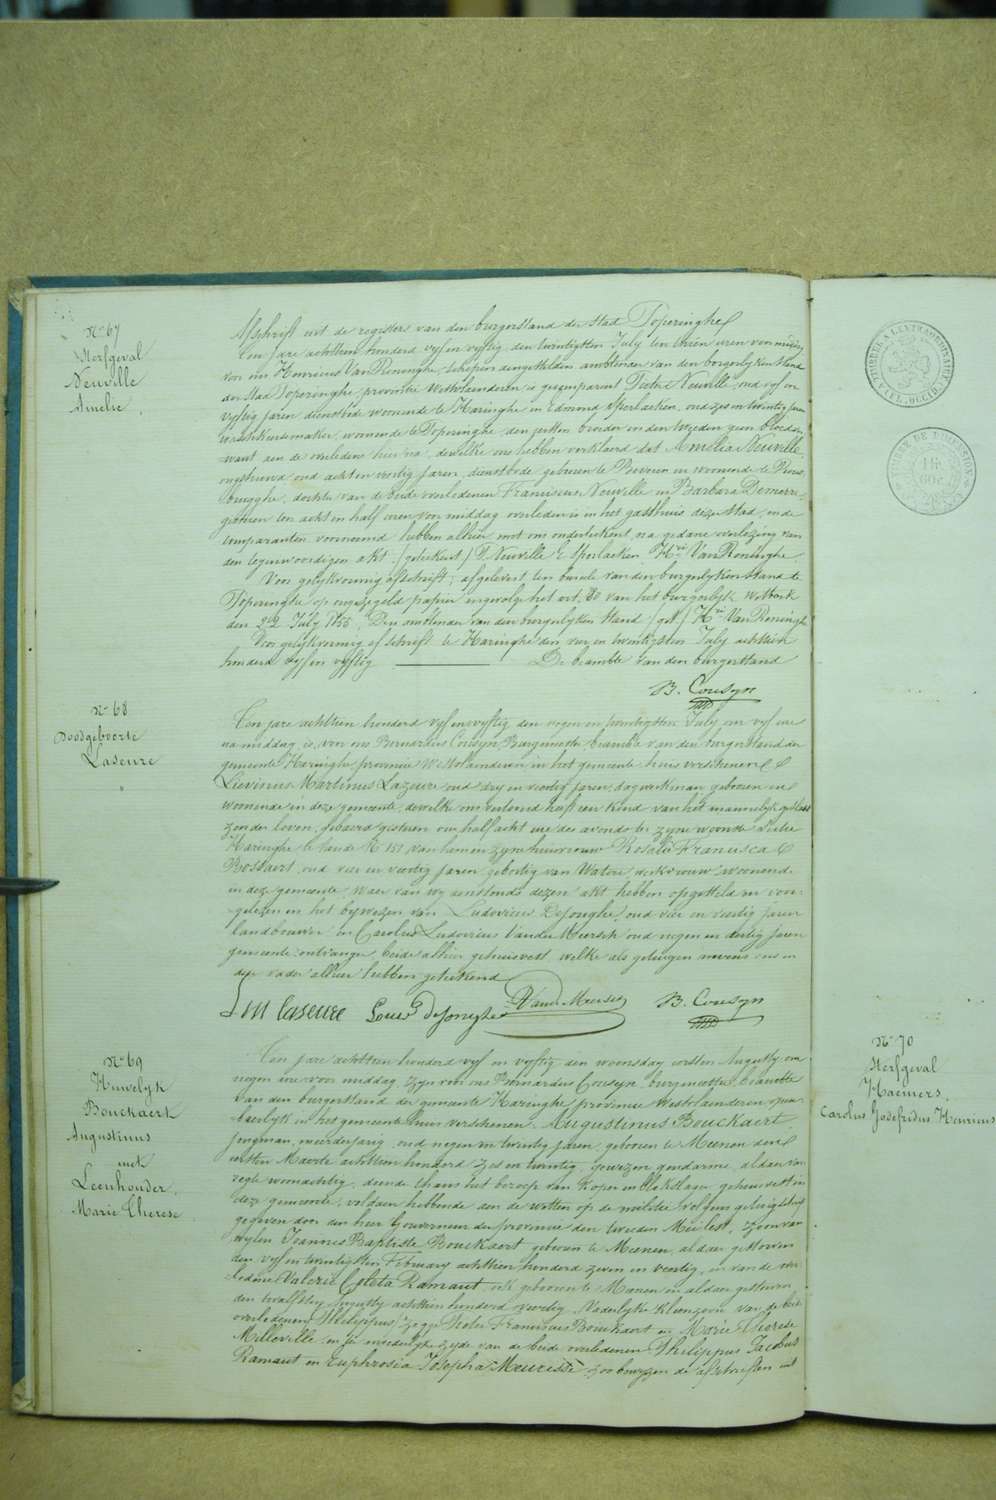 N° 67
Sterfgeval
Neuville
Amelie.
Afschrift uit de registers van den burgerstand der stad Poperinghe
Ten jare achttien honderd vyf en vyftig den twintigsten July ten thien uren voormiddag
voor ons Henricus Van Renynghe, schepen aengestelden ambtenaer van den borgerlyken stand
der Stad Poperinghe provincie Westvlaenderen is gecompareert Pieter Neuville, oud vyf en
vyftig jaren dienstbode woonende te Haringhe en Edmond Sporlacken, oud zes en twintig jaren
woonende te Poperinghe, den eersten broeder en den tweeden geen bloedver
want aen de overledene hier na, dewelke ons hebben verklaerd dat Amelia Neuville,
ongehuwd oud acht en veertig jaren, dienstbode geboren te en woonende te
dochter van de beide overledenen Franciscus Neuville en Barbara
gisteren ten acht en half uren voor middag overleden is in het gasthuis dezer stad, en de
comparanten voornoemd hebben alhier met ons onderteekent na gedane voorlezing van
den tegenwoordigen akt. (geteekent) P. Neuville E Sporlacken Hri Van Renynghe.
Voor gelykvormig afschrift; afgelevert ten bureele van den burgerlyken stand te
Poperinghe op ongezegeld papier ingevolge het art. 80 van het burgerlyk Wetboek
den 22 July 1855. Den ambtenaer van den burgerlyken stand (get.) Hri Van Renynghe
Voor gelykvormig afschrift te Haringhe den vier en twintigsten July achttien
honderd vyf en vyftig De beambte van den burgerstand
B. Cousyn
N° 68
Doodgeboorte
Laseure
Ten jare achttien honderd vyf en vyftig den negen en twintigsten July om vyf ure
na middag, is voor ons Bernardus Cousyn Burgemeester beambte van den burgerstand der
gemeente Haringhe provincie Westvlaenderen in het gemeente huis verschenen
Lievinus Martinus Lazeure oud dry en veertig jaren, dagwerkman geboren en
woonende in deze gemeente, dewelke ons vertoond heeft een kind van het mannelyk geslacht
zonder leven, gebaerd gisteren om half acht ure des avonds ter zyne woonste sectie
Haringhe te lande N° 151 van hem en zyne huisvrouw Rosalie Francisca
Bossaert oud vier en veertig jaren geboortig van Watou, werkvrouw woonende
in deze gemeente, waer van wy aenstonds dezen akt hebben opgesteld en voor-
gelezen in het bywezen van Ludovicus Dejonghe, oud vier en veertig jaren
landbouwer en Carolus Ludovicus Vander Meersch oud negen en dertig jaren
gemeente-ontvanger beide alhier gehuisvest welke als getuigen nevens ons en
den vader alhier hebben geteekend
L M Laseure Louis Dejonghe VanderMeersch B. Cousyn
N° 69
Huwelyk
Bouckaert
Augustinus
met
Leenhouder,
Marie Therese
Ten jare achttien honderd vyf en vyftig den woensdag eersten Augusty om
negen ure voor middag, zyn voor ons Bernardus Cousyn burgemeester beambte
van den burgerstand der gemeente Haringhe provincie Westvlaenderen open-
baerlyk in het gemeente huis verschenen. Augustinus Bouckaert
jongman, meerderjarig, oud negen en twintig jaren, geboren te Meenen den
eersten Maerte achttien honderd zes en twintig, gewezen gendarme, aldaer van
regts woonachtig, doende thans het beroep van koper en blekslager gehuisvest in
deze gemeente, voldaen hebbende aen de wetten op de militie volgens getuigschrift
gegeven door den heer Gouverneur der provincie den tweeden Mei lest, zoon van
wylen Joannes Baptiste Bouckaert geboren te Meenen, aldaer gestorven
den vyf en twintigsten February achttien honderd zeven en veertig, en van de over-
ledene Valerie Coleta Ramaut, ook geboren te Meenen en aldaer gestorven
den twaelfsten Augusty achttien honderd veertig. Vaderlyke kleenzoon van de beide
overledenen Philippus, zegge Pieter Franciscus Bouckaert en Marie Therese
Milleville en ter moederlyke zyde van de beide overledenen Philippus Jacobus
Ramaut en Euphrosia Josepha Meurisse zoo bewyzen de afschriften uit
N° 70
Sterfgeval
Haemers,
Carolus Godefridus Henricus